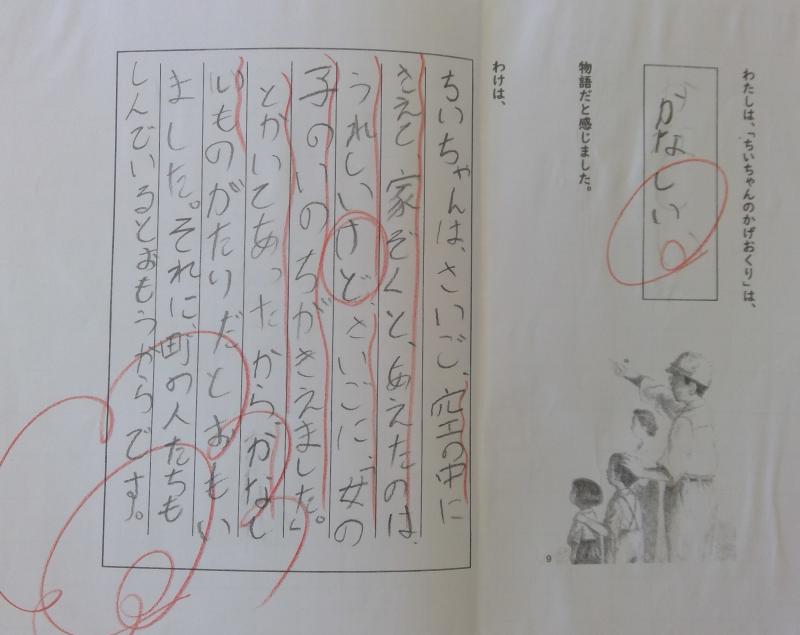 わたしは、「ちいちゃんのかげおくり」は、
かなしい
物語だと感じました。
わけは、
ちいちゃんは、さいご、空の中に
きえて家ぞくと、あえたのは、
うれしいけど、さいごに、「女の
子のいのちがきえました。」
とかいてあったから、かなし
いものがたりだとおもい
ました。それに、町の人たちも
しんでいるとおもうからです。
9